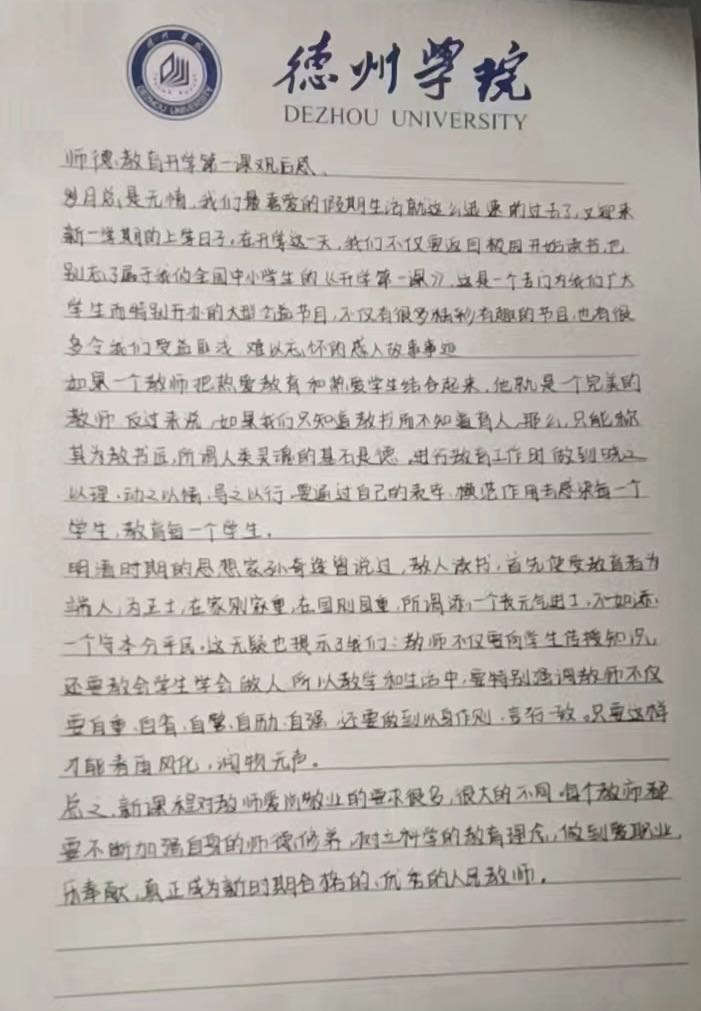 德州学院
DEZHOU UNIVERSITY
DEZHOU UNIVERSITY
师德教育开学第一课观后感
岁月总是无情,我们最喜爱的假期生活就这么迅速的过去了,又迎来
新一学期的上学日子,在开学这一天,我们不仅要返回校园开始读书,也
别忘了属于我们全国中小学生的《开学第一课》,这是一个专门为我们广大
学生而特别开办的大型公益节目,不仅有很多精彩有趣的节目,也有很
多令我们受益匪浅,难以忘怀的感人故事事迹
如果一个教师把热爱教育和热爱学生结合起来,他就是一个完美的
教师,反过来说,如果我们只知道教书而不知道育人,那么,只能称
其为教书匠,所谓人类灵魂的基石是德,进行教育工作时做到晓之
以理,动之以情,导之以行,要通过自己的表率,模范作用去感染每一个
学生,教育每一个学生。
明清时期的思想家孙奇逢曾说过,教人读书,首先使受教育者为
端人,为正士,在家则家重,在国则国重,所谓添一个丧元气进士,不如添
一个守本分平民。这无疑也揭示了我们:教师不仅要向学生传授知识,
还要教会学生学会做人,所以教学和生活中,要特别强调教师不仅
要自重,自省,自警,自励,自强,还要做到以身作则,言行一致。只要这样
才能春雨风化,润物无声。
总之,新课程对教师爱岗敬业的要求很多,很大的不同,每个教师都
要不断加强自身的师德修养,树立科学的教育理念,做到爱职业,
乐奉献,真正成为新时期合格的、优秀的人民教师。